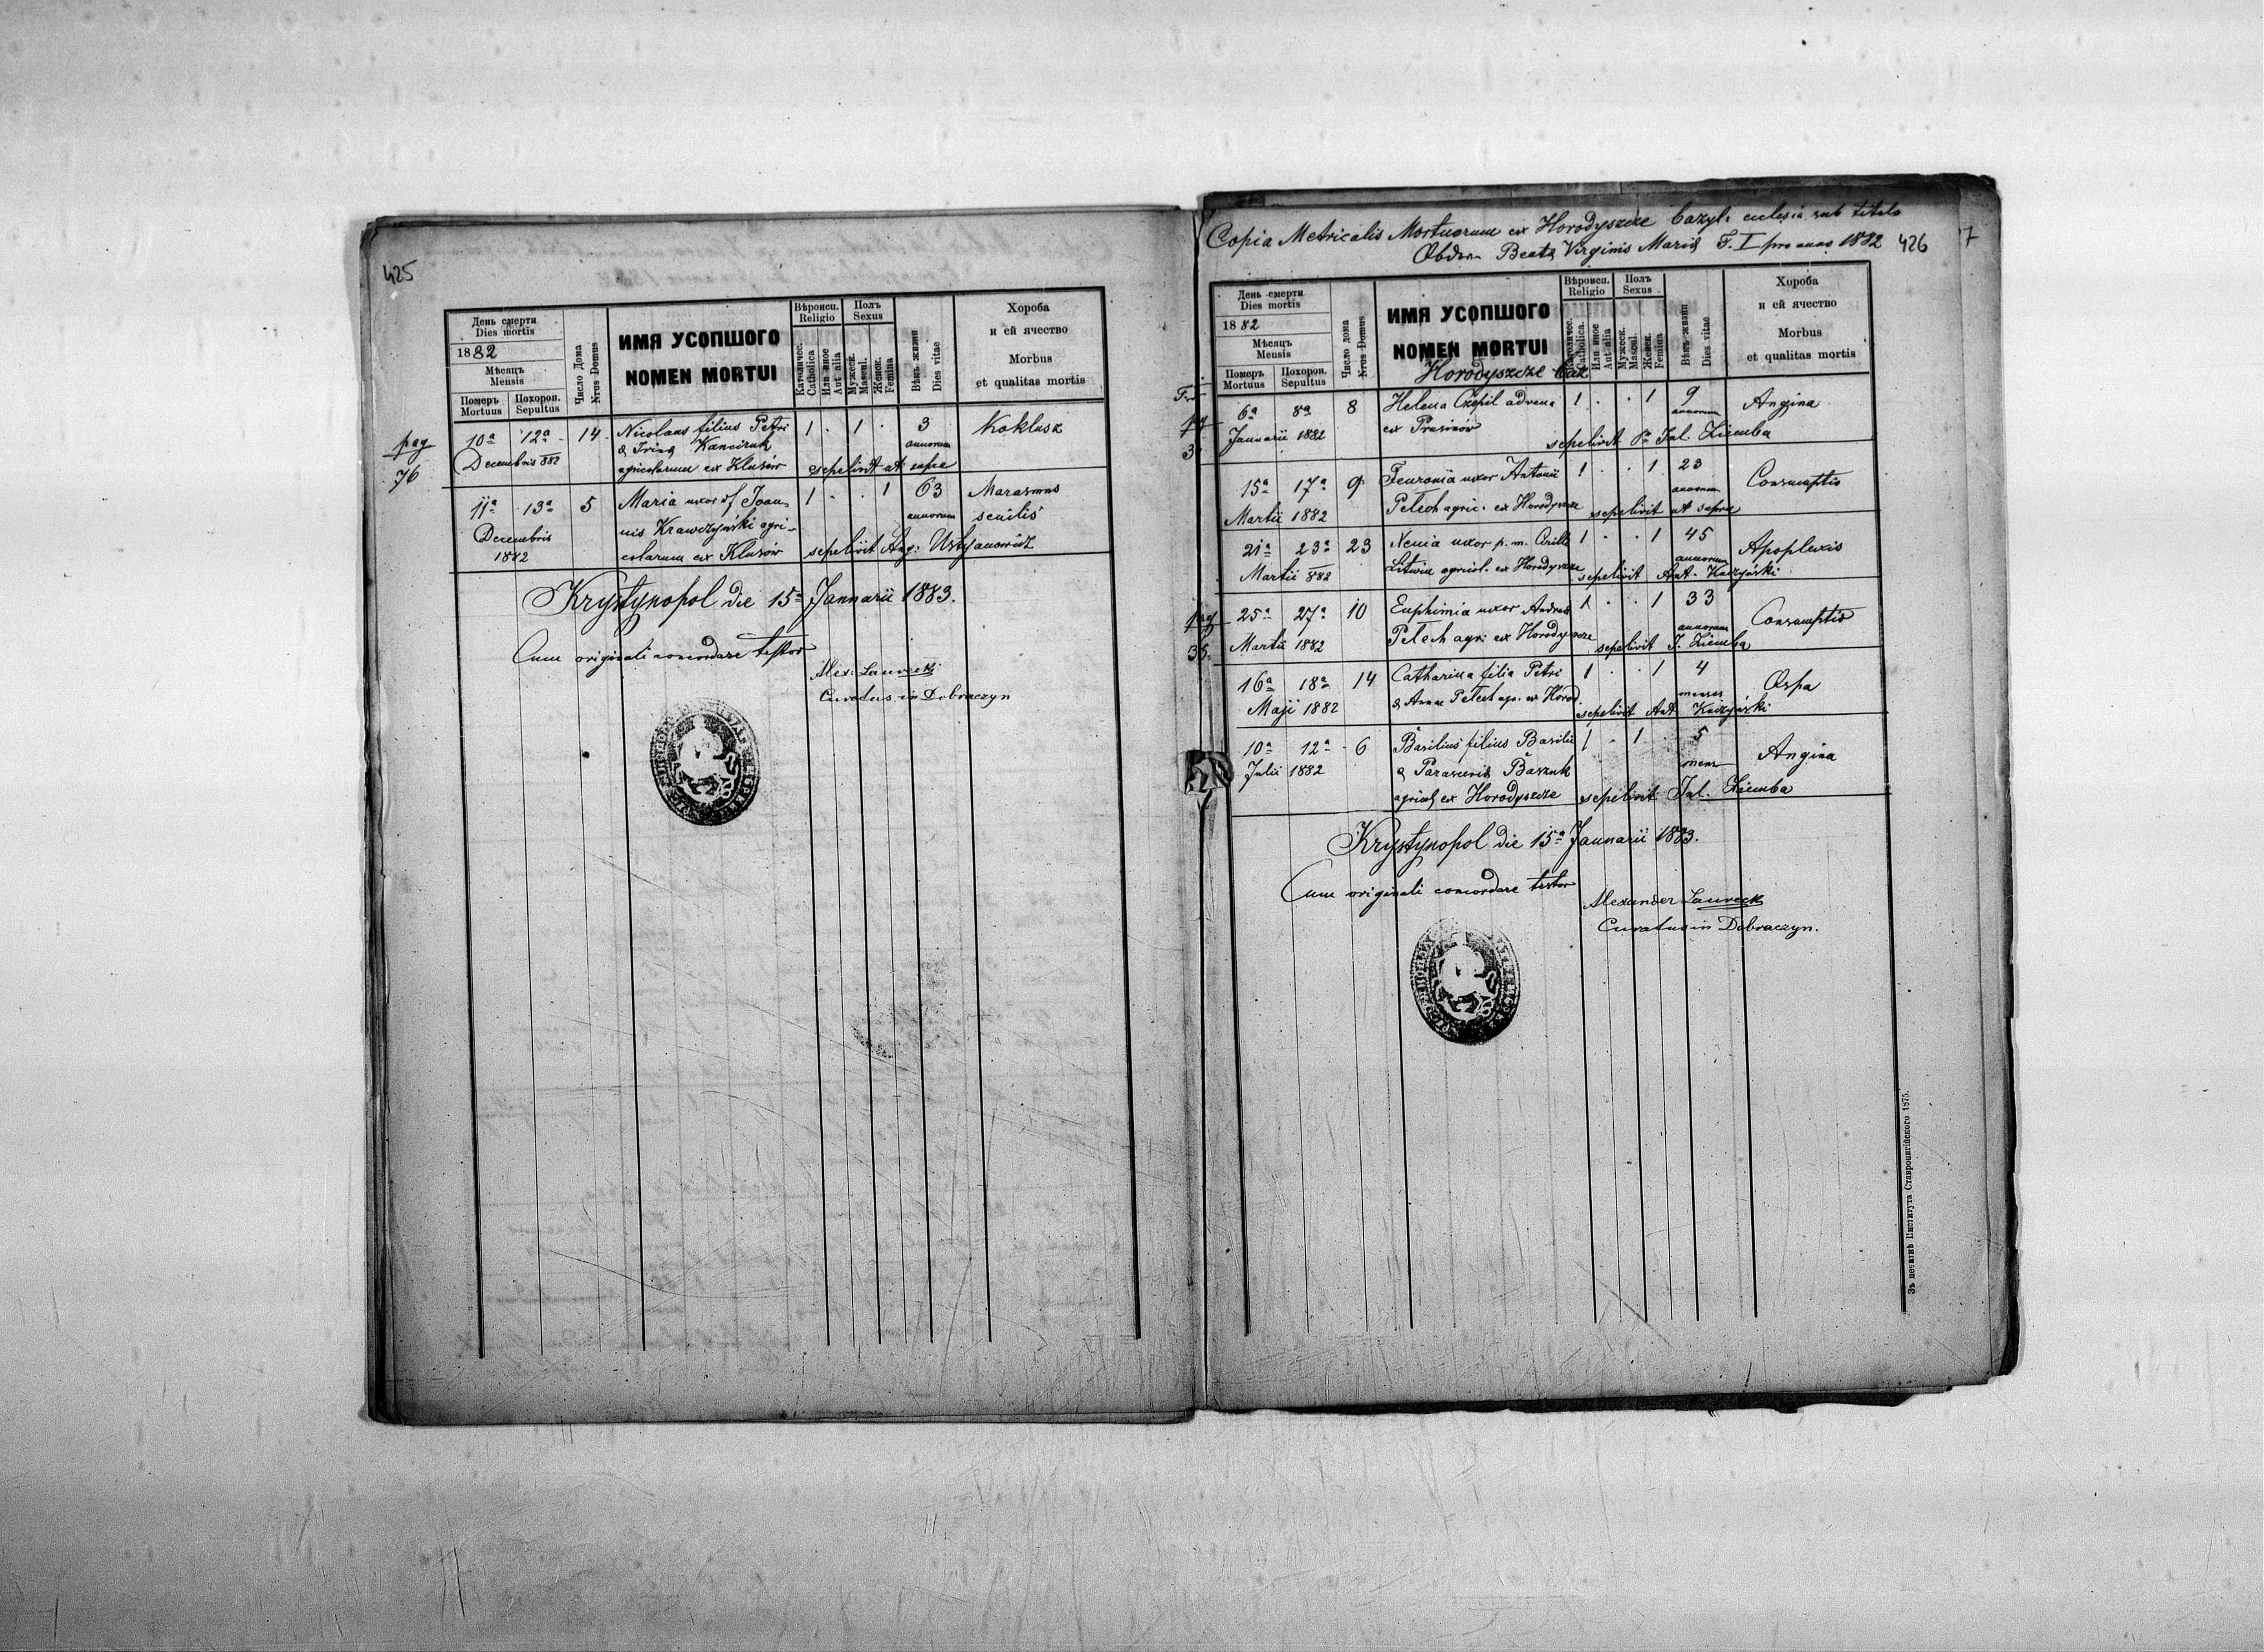 425
День смерти
Dies mortis
1882
Мѣсяцъ
Mensis
Померъ
Mortuus
Похорон.
Sepultus
Число Дома
Nrus Domus
ИМЯ УСОПШОГО
NOMEN MORTUI
Вѣроисп.
Religio
Католичес.
Catholica
Или иное
Aut alia
Полъ
Sexus
Мужеск.
Mascul.
Женск.
Femina
Вѣкъ жизни
Dies vitae
Хороба
и ей ячество
Morbus
et qualitas mortis
pag
76
10a 12a 14 Nicolaus filius Petri 1 . 1 . 3 Koklusz
& Irinæ annorum
Decembris 882 agricolarum ex Klusów sepelivit ut supra
11a 13a 5 Maria uxor Joan- 1 . . 1 63 Marasmus
Decembris nis Krawczyński agri- annorum senilis
1882 colarum ex Klusów sepelivit Aug: Ustyanowicz
Krystynopol die 15a Januarii 1883.
Cum originali concordare testor
Alex: Laurecki
Curatus in Dobraczyn
Copia Metricalis Mortuorum ex Horodyszcze bazyl. eclesia sub titulo
Beatæ Virginis Mariæ T. I pro anno 1882
426
7
День смерти
Dies mortis
1882
Мѣсяцъ
Mensis
Померъ
Mortuus
Похорон.
Sepultus
Число дома
Nrus Domus
ИМЯ УСОПШОГО
NOMEN MORTUI
Horodyszcze baz.
Вѣроисп.
Religio
Католичес.
Catholica.
Или иное
Aut alia
Полъ
Sexus
Мужеск.
Mascul.
Женск.
Femina
Вѣкъ жизни
Dies vitae
Хороба
и ей ячество
Morbus
et qualitas mortis
6a 8a 8 Helena Czepil advena 1 . . 1 9 Angina
annorum
Januarii 1882 ex Prusinów sepelivit Jul. Ziemba
15a 17a 9 Feuronia uxor Antonii 1 . . 1 23 Consumptio
annorum
Martii 1882 Petech agric. ex Horodyszcze sepelivit ut supra
21a 23a 23 Xenia uxor p. m. Cirilli 1 . . 1 45 Apoplexis
annorum
Martii 882 Litwin agricol. ex Horodyszcze sepelivit Ant. Kaczyński
pag
35.
25a 27a 10 Euphimia uxor Andreæ 1 . . 1 33 Consumptio
annorum
Martii 1882 Petech agri ex Horodyszcze sepelivit J. Ziemba
16a 18a 14 Catharina filia Petri 1 . . 1 4 Ospa
menses
Maji 1882 & Annæ Petech agr. ex Horod. sepelivit Ant. Kaczyński
10a 12a 6 Basilius filius Basilii 1 . 1 . 5 Angina
Julii 1882 & Parasceviæ Baszuk mens
agricol ex Horodyszcze sepelivit Jul. Ziemba
Krystynopol die 15a Januarii 1883.
Cum originali concordare testor
Alexander Laurecki
Curatus in Dobraczyn.
Зъ печатнѣ Института Ставропигійского 1875.